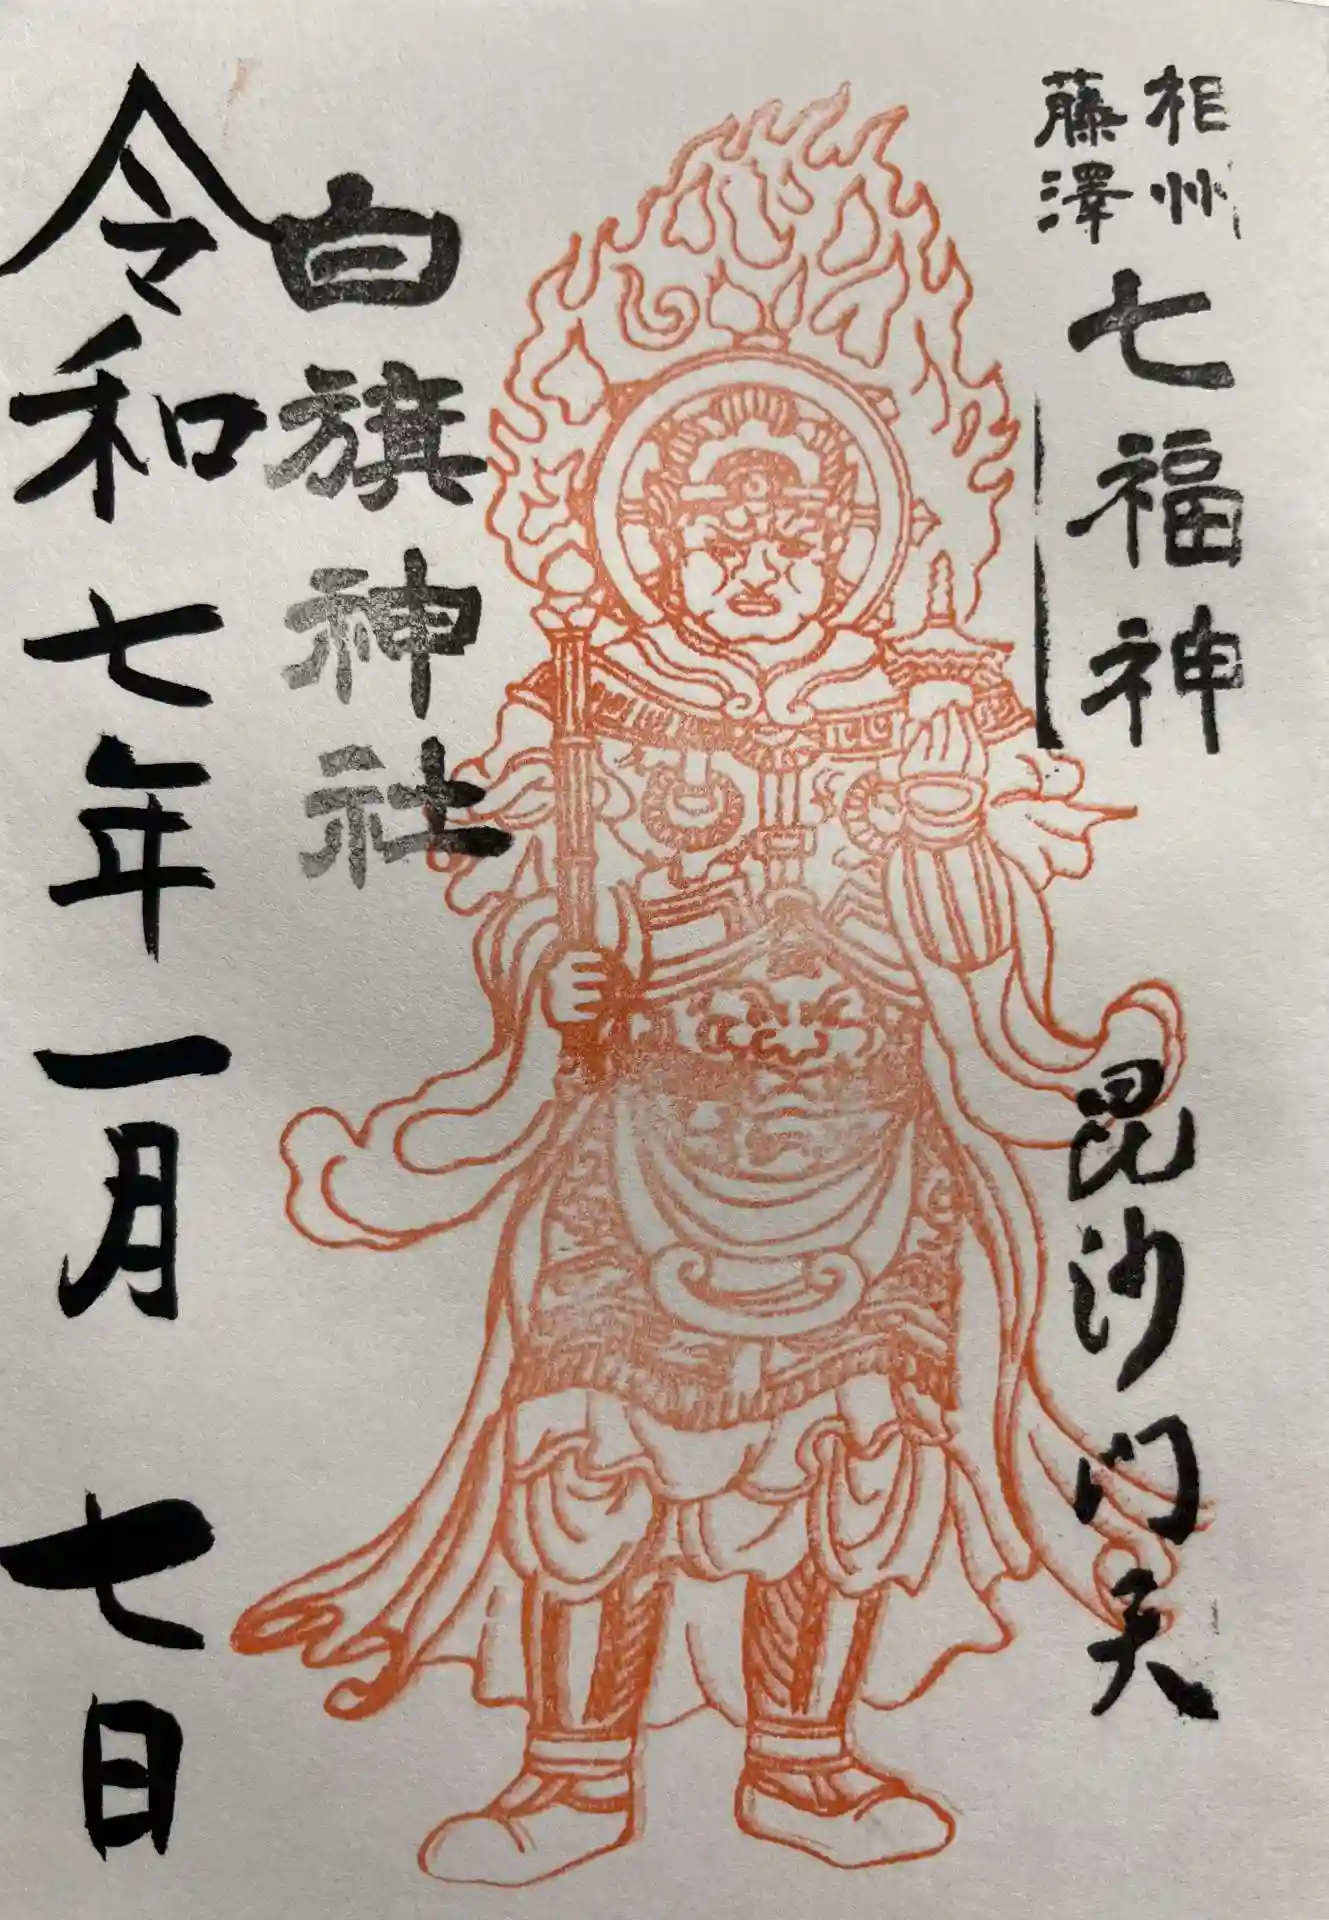 相州
藤澤
七福神
毘沙門天
白旗神社
令和七年一月七日